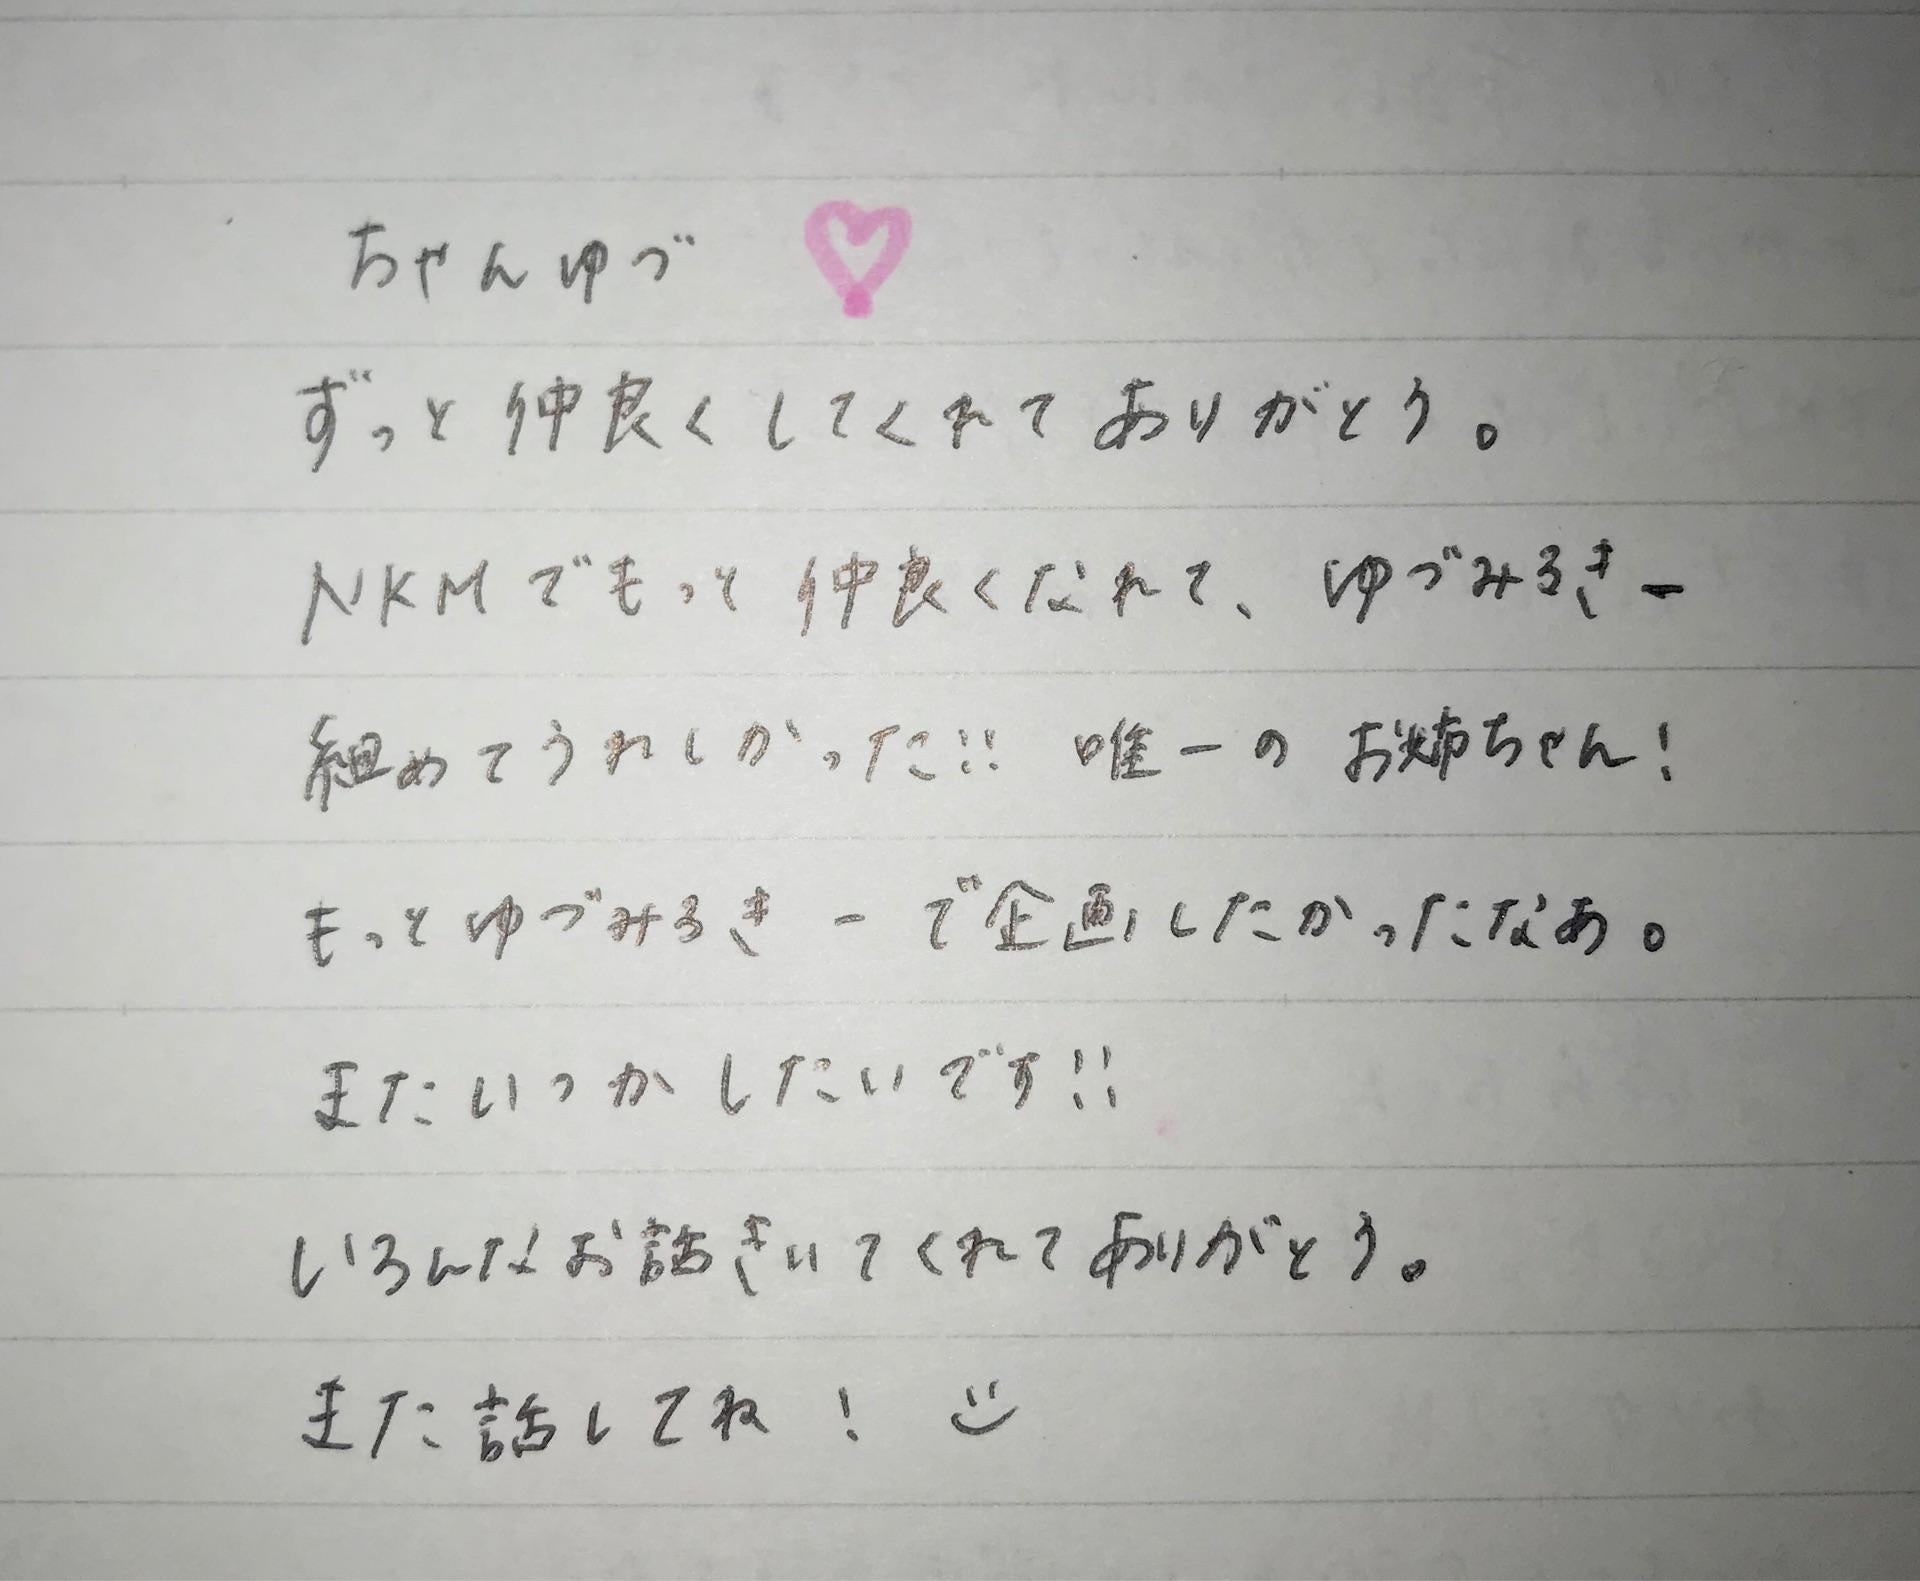 ちゃんゆづ ♡
ずっと仲良くしてくれてありがとう。
NKMでもっと仲良くなれて、ゆづみるきー
組めてうれしかった!! 唯一のお姉ちゃん!
もっとゆづみるきーで企画したかったなあ。
またいつかしたいです!!
いろんなお話きいてくれてありがとう。
また話してね!